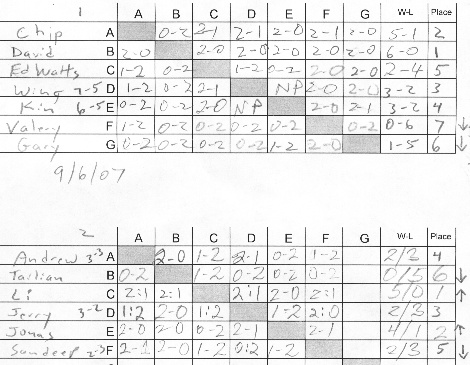 1 A B C D E F G W-L Place
Chip A 0-2 2-1 2-1 2-0 2-1 2-0 5-1 2
David B 2-0 2-0 2-0 2-0 2-0 2-0 6-0 1
Ed Watts C 1-2 0-2 1-2 0-2 2-0 2-0 2-4 5
Wing 7-5 D 1-2 0-2 2-1 NP 2-0 2-0 3-2 3
Kin 6-5 E 0-2 0-2 2-0 NP 2-0 2-1 3-2 4
Valery F 1-2 0-2 0-2 0-2 0-2 0-2 0-6 7 ↓
Gary G 0-2 0-2 0-2 0-2 1-2 2-0 1-5 6 ↓
9/6/07
2 A B C D E F G W-L Place
Andrew 3-3 A 2-0 1-2 2-1 0-2 1-2 2/3 4
B 0-2 1-2 0-2 0-2 0-2 0/5 6 ↓
Li C 2:1 2:1 2:1 2-0 2:1 5/0 1 ↑
Jerry 3-2 D 1:2 2:0 1:2 1-2 2:0 2/3 3
Jonas E 2-0 2-0 0-2 2-1 2-1 4/1 2 ↑
Sandeep 2-3 F 2-1 2-0 1-2 0:2 1-2 2/3 5 ↓